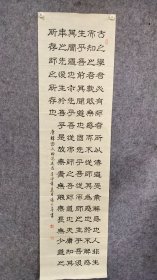 古之學者必有師師者所以傳道受業解惑也人非生
而知之者孰能無惑惑而不從師其為惑也終不解矣
生乎吾前其聞道也固先乎吾吾從而師之生乎吾後
其聞道也亦先乎吾吾從而師之吾師道也夫庸知其
年之先後生於吾乎是故無貴無賤無長無少道之
所存師之所存也